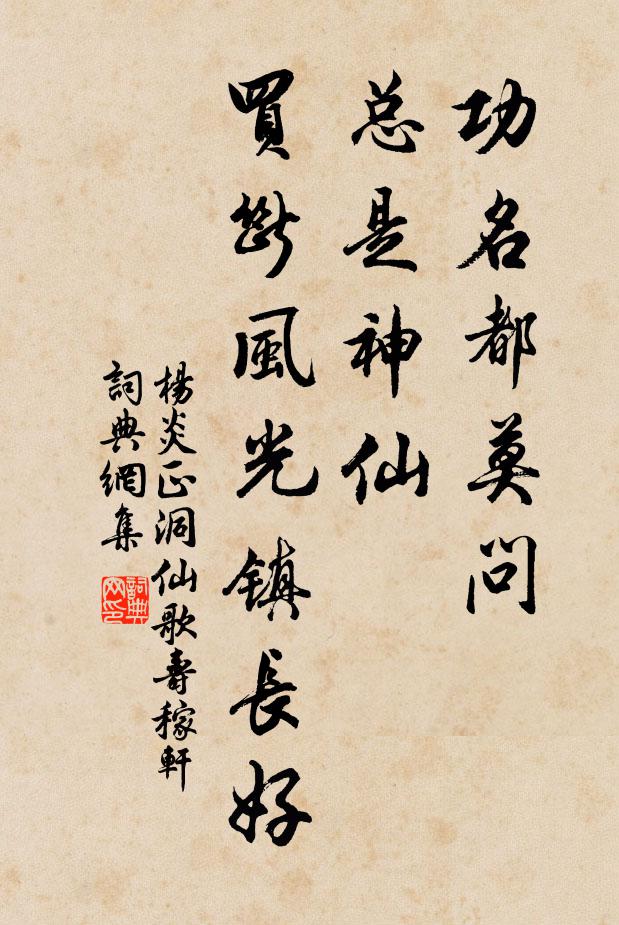 功名都莫问
总是神仙
買斷風光镇長好
楊炎正洞仙歌壽稼軒
詞典網集
詞典网印